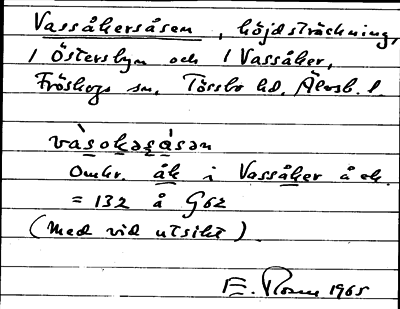 Vassåkersåsen, höjdsträckning,
i Österbyn och i Vassåker,
Fröskogs sn, Tössbo hd. Älvsb. l.
vàsokəsåsən
Omkr. åk i Vassåker å ek.
= 132 å G62
(Med vid utsikt)
E. 1965